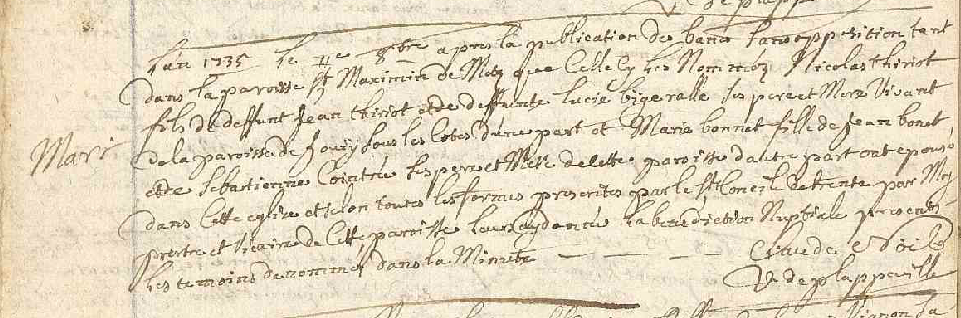 L'an 1735 le 11e 8bre apres la publication des bans sans opposition tant
dans la paroisse St Maximin de Metz que Celle Cy les Nommez Nicolas thiriot
fils de deffunt Jean thiriot et de deffunte lucie bigeralle ses pere et Mere Vivant
Mari de la paroisse de Jouy sous les Cotes d'une part et Marie bonnet fille de Jean bonet
et de Sebastienne Cointré ses pere et Mere de cette paroisse d'autre part ont epousé
dans Cette eglise et selon toutes les formes prescrites par le St Concil de trente par Moy
prestre et vicaire de Cette paroisse leur ay donné la benediction Nuptiale presents
les temoins denommez dans la Minute
V. de plappeville